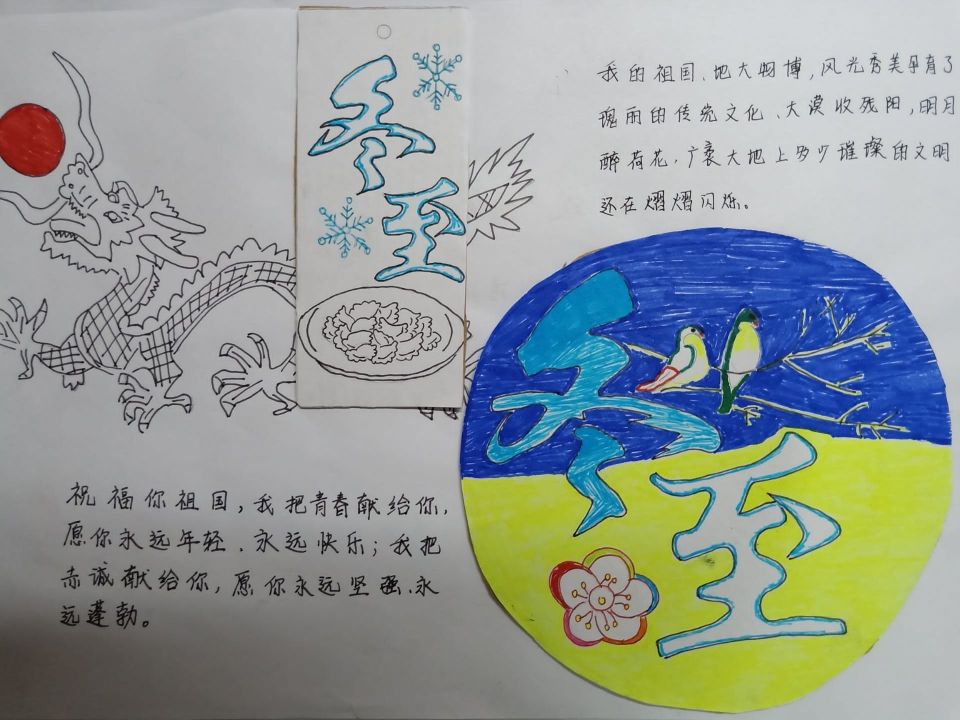 冬至
我的祖国、地大物博，风光秀美孕育了
瑰丽的传统文化、大漠收残阳，明月
醉荷花，广袤大地上多少璀璨的文明
还在熠熠闪烁。
冬至
祝福你祖国，我把青春献给你，
愿你永远年轻、永远快乐；我把
赤诚献给你，愿你永远坚强、永
远蓬勃。